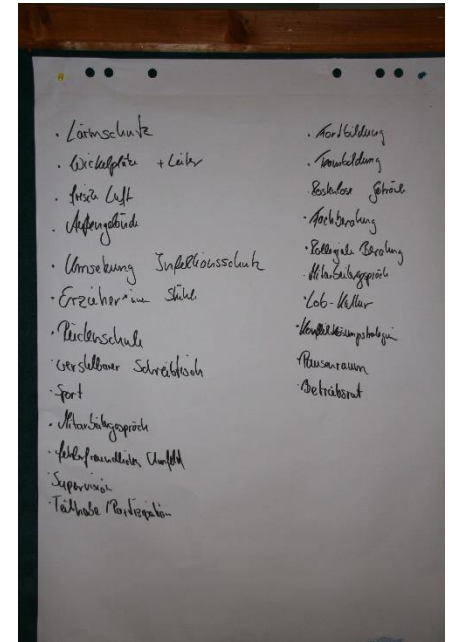 · Lärmschutz
· Wickelplätze + Leiter
· frische Luft
· Außengelände
· Umsetzung Infektionsschutz
· Erzieher*innen Stühle
· Rückenschule
· verstellbarer Schreibtisch
· Sport
· Mitarbeitergespräch
· fehlerfreundliches Umfeld
· Supervision
· Teilhabe / Partizipation
· Fortbildung
· Teambildung
· Kostenlose Getränke
· Fachberatung
· Kollegiale Beratung
· Mitarbeitergespräch
· Lob-Kultur
· Konfliktlösungsstrategien
· Pausenraum
· Betriebsrat